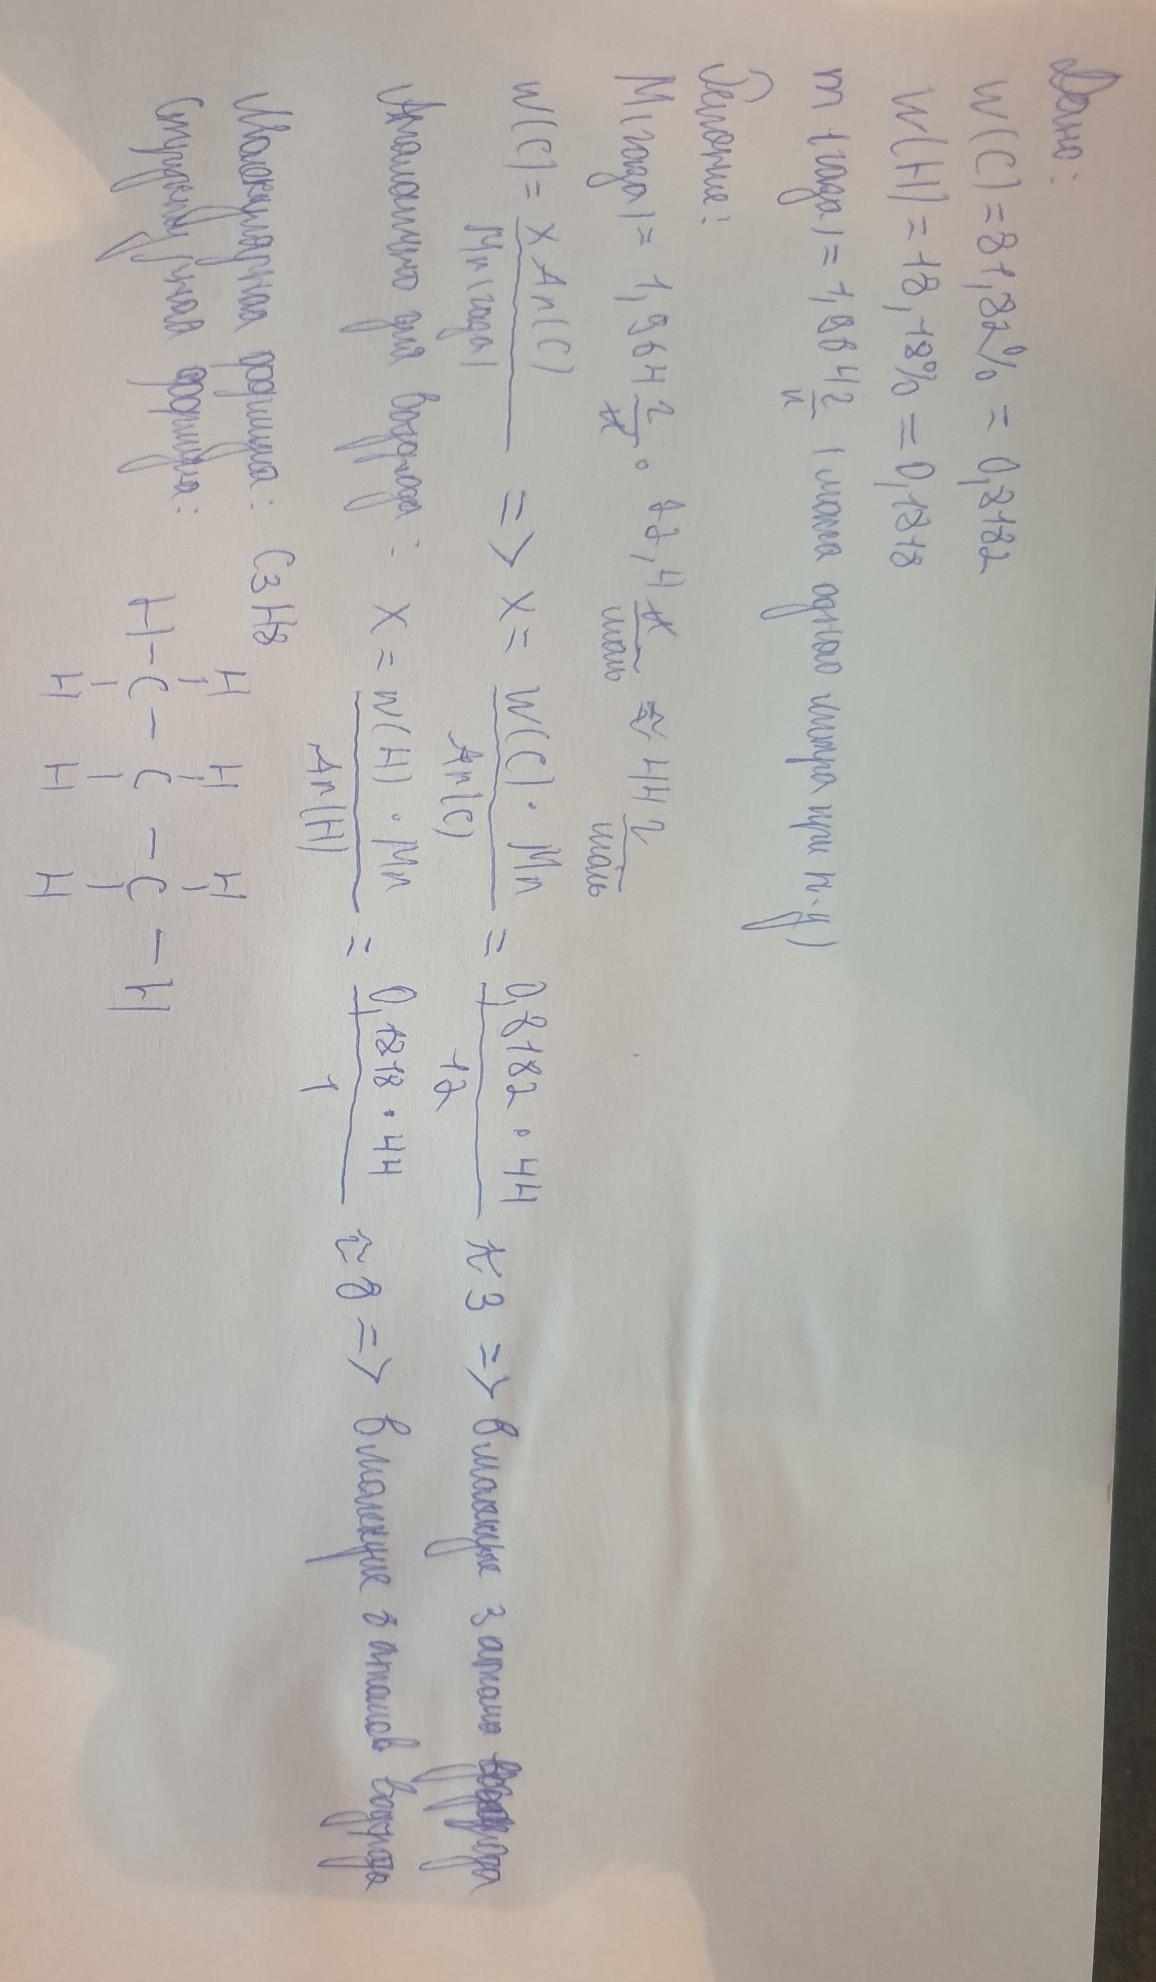 Дано:
W(C) = 81,82% = 0,8182
W(H) = 18,18% = 0,1818
m (газа) = 1,964 г/л (масса одного литра при н.у)
Решение:
M(газа) = 1,964 г/л · 22,4 л/моль ≈ 44 г/моль
W(C) = x Ar(C) / Mr(газа) => x = W(C) · Mr / Ar(C) = 0,8182 · 44 / 12 ≈ 3 => в молекуле 3 атома углерода
Аналогично для водорода: x = W(H) · Mr / Ar(H) = 0,1818 · 44 / 1 ≈ 8 => в молекуле 8 атомов водорода
Молекулярная формула: C3H8
Структурная формула:
H H H
H - C - C - C - H
H H H